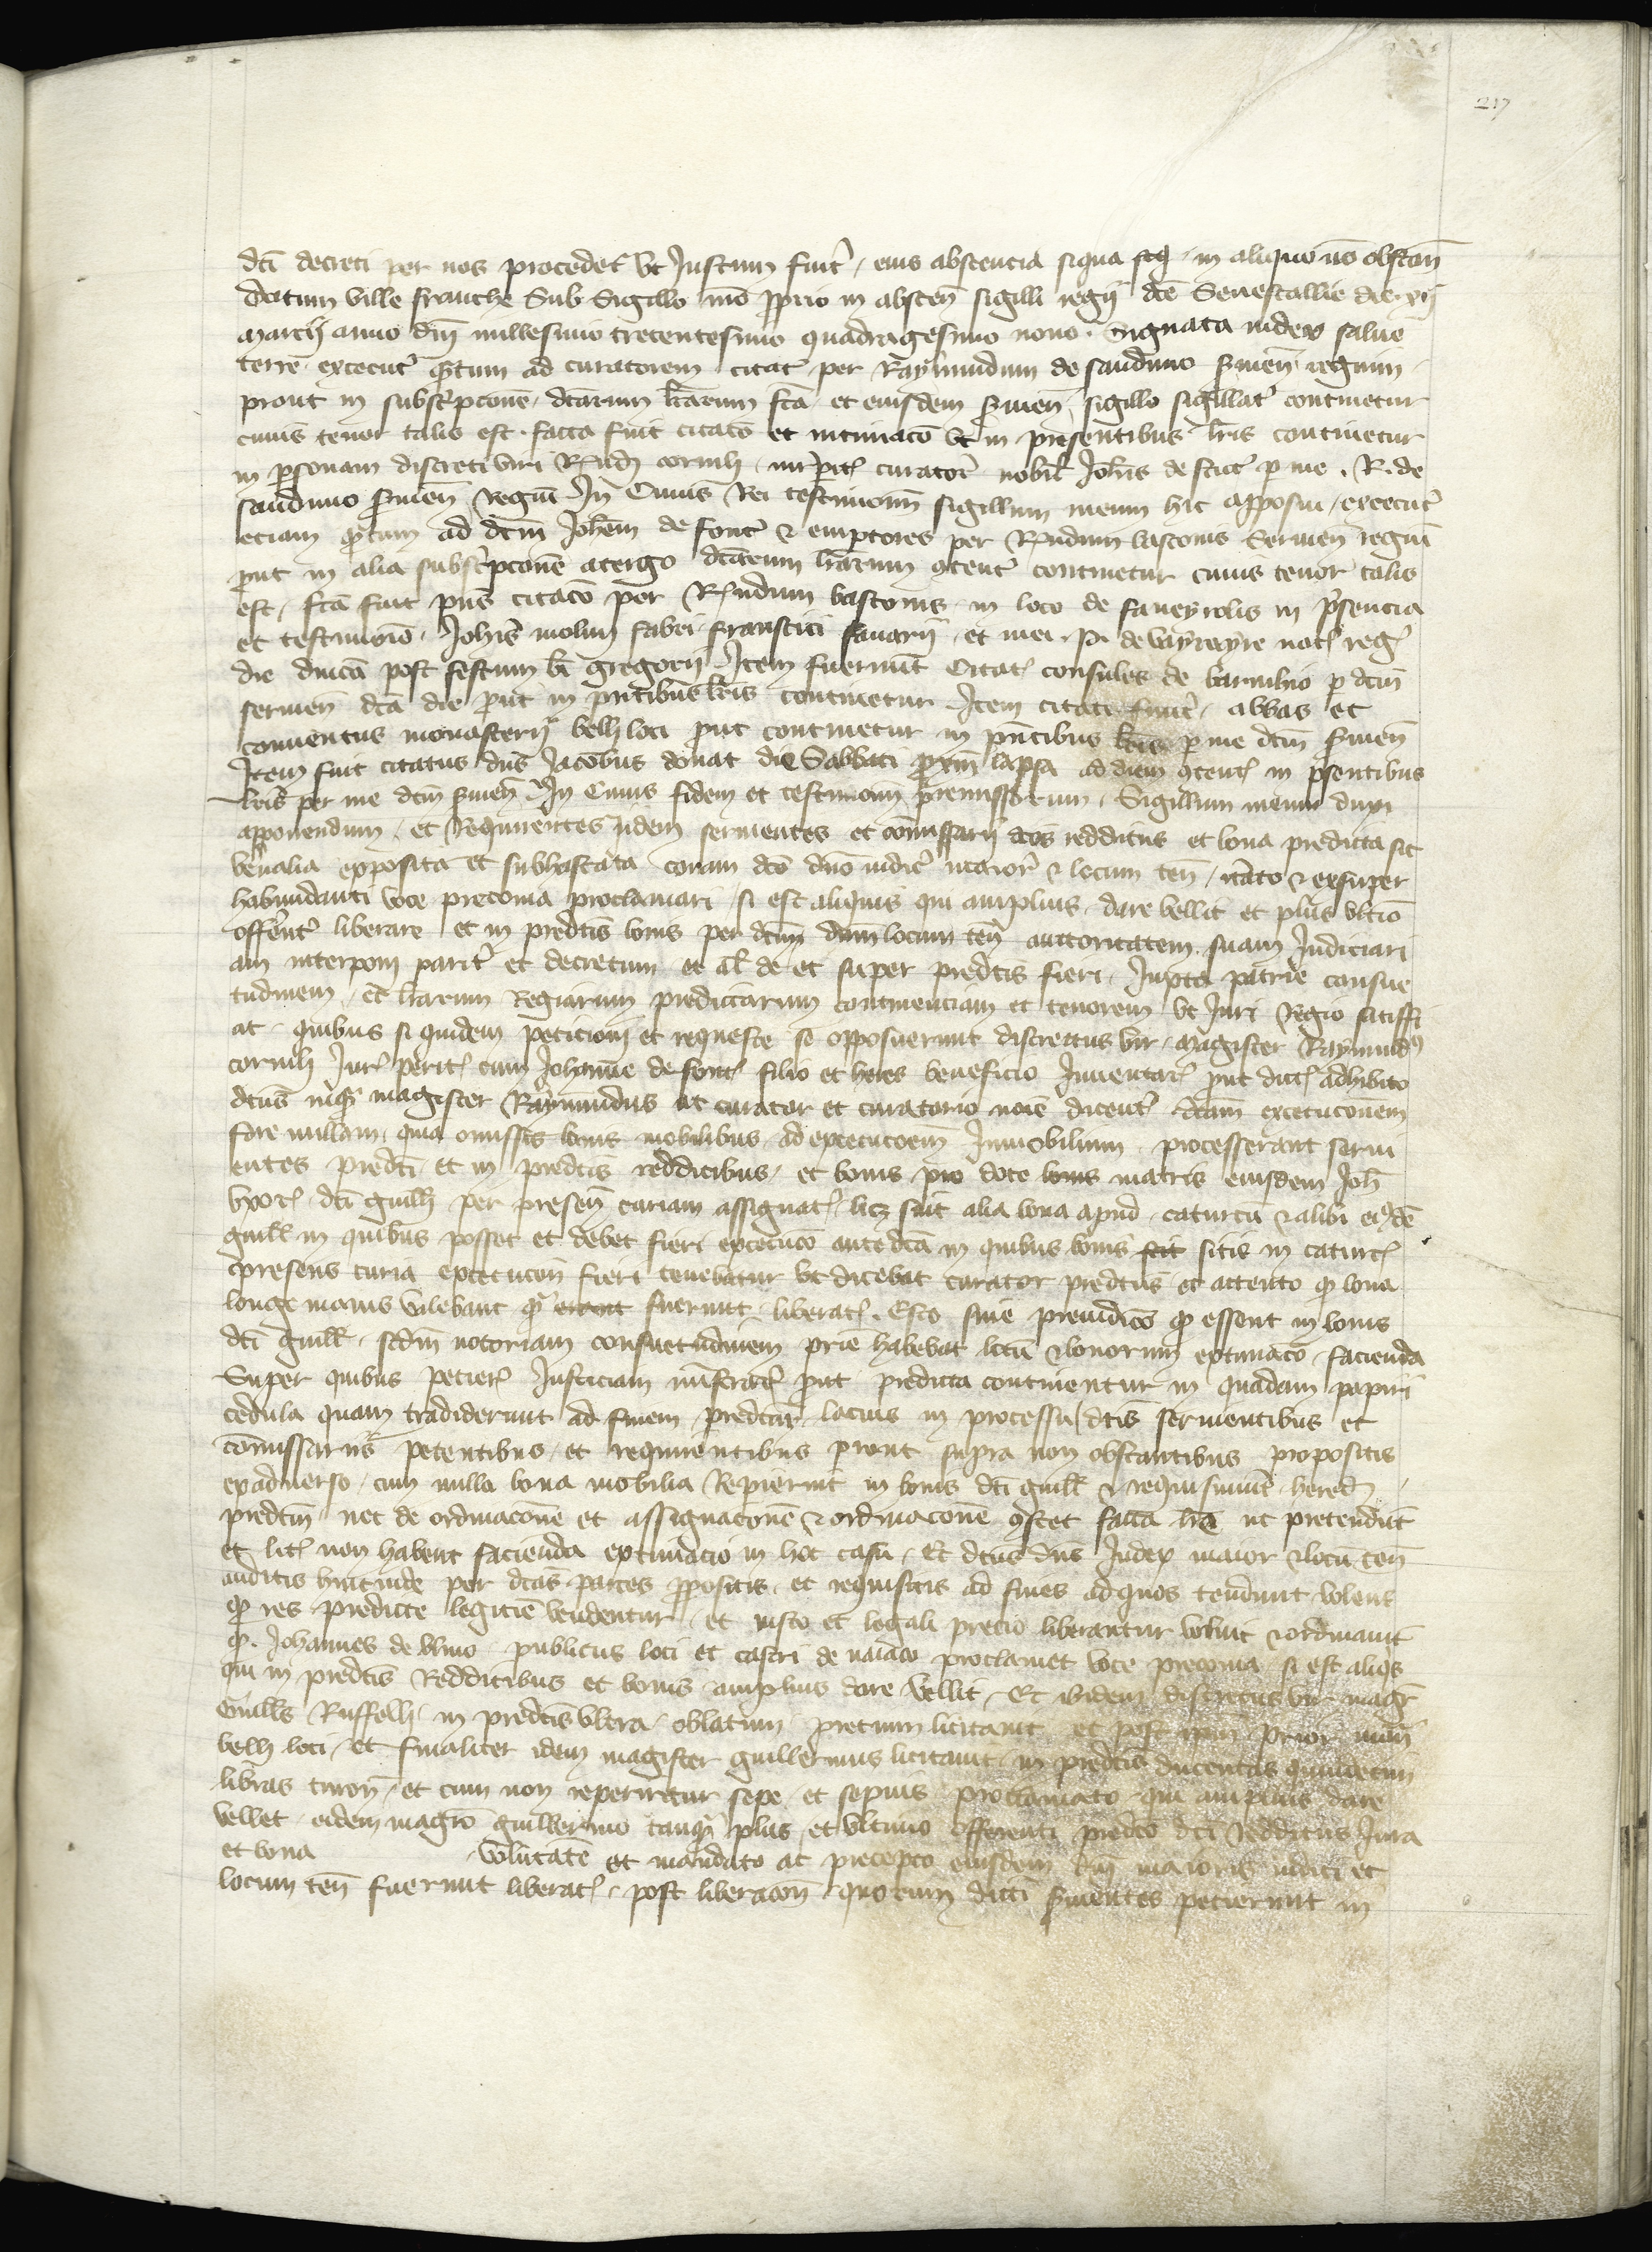 217
dcī decreti per nos procedet̉ vt Justum fuit̉ / eius abscencia siqua in aliquo nō obstan̄
datum ville franche Sub Sigillo mō pprio in abscen̄ sigilli regij dcē Senescallie die xij
marcij anno dn̄i millesimo trecentesimo quadragesimo nono . signata iudex salue
terre execut̉ q̄tum ad curatorem citat̉ per Raymundum de saudimo s̉uien̄ regium
prout in subscrip̄conē dcārum lr̄arum fcā et eiusdem s̉uien̄ sigillo sigillat̉ continetur
cuius tenor talis est . facta fuit citacō et intimacō vt in presentibus lr̄is continetur
in p̱sonam discreti viri R̉nd̉ cornih iur̉perit̉ curator̉ nobil̄ Joh̄is de font̉ p̱ me . R . de
saudimo s̉uien̄ regiū In Cuius Rei testimoniū sigillum meum hic apposui / execut̉
eciam q̄tum ad dcm̄ Joh̄em de font̉ & emptores per R̉ndum vasconis Seruien̄ regiū
put in alia subscrip̄conē atergo dcārum lr̄arum 9tent̉ continetur cuius tenor talis
est / fcā fuit pn̄s citacō per R̉ndum vasconis in loco de faueyrolis in p̄sencia
et testimonio Joh̄is molini fabri franscisi sauarij et mei . P . de vayreyre not̉ reg̉
die dn̄icā post festum bī gregorij Item fuerunt Citat̉ consules de p̱ dcm̄
seruien̄ dcā die put in pn̄tibus lr̄is continetur Item citati fuer̉t abbas et
conuentus monasterij belli loci put continetur in pn̄tibus lr̄is p̱ me dcm̄ s̉uien̄
Item fuit citatus dn̄s Jacobus donat die Sabbati pxīm lapsa ad diem 9tent̉ in p̄sentibus
lr̄is per me dcm̄ s̉uien̄ In Cuius fidem et testimoniū premissorum Sigillum meum duxi
apponendum / et Requirentes ijdem seruientes et cōmissarij dcōs redditus et bona predicta sic
venalia exposita et subhastata coram dcō dn̄o iudic̉ maior̉ & locum ten̄ / itāto & exsuper
habundanti voce preconia proclamari si est aliquis qui amplius dare vellit et plus vltīo
offerent̉ liberare et in predc̄is bonis per dcm̄ dn̄m locum ten̄ auctoritatem suam Judiciari
am interponi parit̉ et decretum et al̄ de et super predc̄is fieri Juxta patrie consue
tudinem et lr̄arum Regiarum predictarum continenciam et tenorem vt Juri Regio satisfi
at quibus si quidem peticioni et requeste se opposuerunt discrettus vir magister Raymund9
cornih Jur̉ perit̉ cum Johanne de font̉ filio et heres beneficio Inuentar̉ put dict̉ adhibito
dcūs inq̉ magister Raymundus ut curator et curatorio noīe dicent̉ dcām excecuconem
fore nullam quia omissis bonis mobilibus ad execucoem̄ Inmobilium processerant serui
entes predcī et in predc̄is redditibus et bonis pro dote bonis matris eiusdem Joh̄
vxor̉ dcī guill̄ per presen̄ curiam assignat̉ licz sint alia bona apud caturcū & alibi eiusdē
guill̄ in quibus posset et debet fieri execucō ante dcā in quibus bonis sitis in caturc̉
presens curia execucon̄ fieri tenebatur vt dicebat curator predc̄us et attento q̱ bona
longe maius valebant q̉ erant fuerunt liberat̉ . Esto sine preiudicō q̱ essent in bonis
dcī guill̄ . scdm̄ notoriam consuetudinem prīe habebat locū & bonorum extimacō facienda
Super quibus petier̉ Justiciam ministrar̉ put predicta continentur in quadam papiri
cedula quam tradiderunt ad finem predcār̉ lacius in processu dcīs seruientibus et
cōmissarijs petentibus et requirentibus prout supra non obstantibus propositis
exaduerso / cum nulla bona mobilia Repierint in bonis dcī guill̄ & requisiuint hered̉
predcm̄ nec de ordinaconē et assignaconē & ordinaconē 9stet facta lrā ut pretendūt
et lic̉ non habent facienda extimacio in hoc casu . Et dcūs dn̄s Judex maior & locū ten̄
auditis hincinde per dcās partes p̱positis et requisitis ad fines adquos tendunt volens
q̱ res predicte legitīe vendentur et iusto et legali precio liberantur voluit & ordinauit
q̱ Johannes de vlmo publicus loci et castri de naiaco proclamet voce preconia si est aliqs
qui in predc̄is Redditibus et bonis amplius dare Vellit / Et ibidem discretus vir magr̄
Guill̄s Ruffelh in predc̄is vltra oblatum precium licitauit et post ipm̄ prior mon̄
belli loci et finaliter idem magister guillermus licitauit in predc̄is ducentas quindecim
libras turon̄ / et cum non reperiretur sepe et sepius proclamato qui amplius dare
vellet eidem magrō guillermo tanq̄ plus et vltimo offerenti predcō dcī redditus Jura
et bona voluntate et mandato ac precepto eiusdem dn̄i maioris iudici et
locum ten̄ fuerunt liberat̉ post liberacon̄ quorum dicti s̉uientes pecierunt in